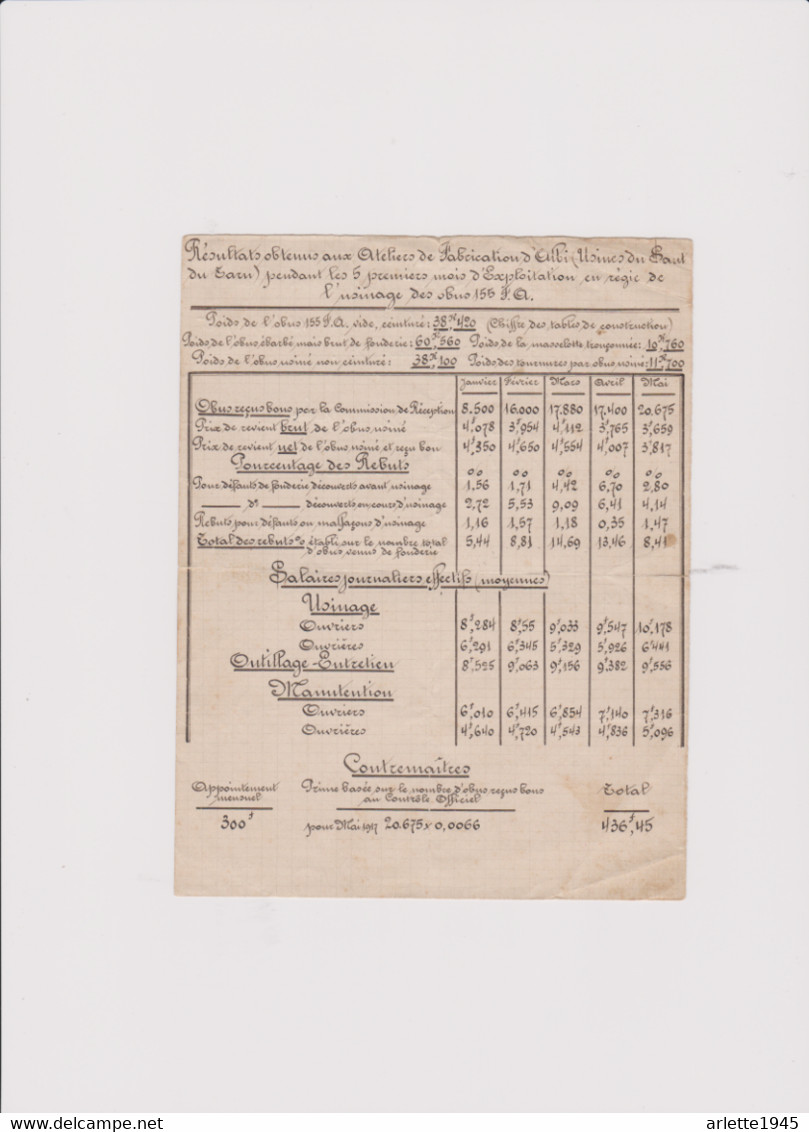 Résultats obtenus aux Ateliers de Fabrication d'Albi (Usines du Saut
du Tarn) pendant les 5 premiers mois d'Exploitation en régie de
l'usinage des obus 155 F.A.
Poids de l'obus 155 F.A. vide, ceinturé: 38K,420 (Chiffre des tables de construction)
Poids de l'obus ébarbé mais brut de fonderie: 60K,560 Poids de la masselotte tronçonnée: 10K,760
Poids de l'obus usiné non ceinturé: 38K,100 Poids des tournures par obus usiné: 11K,700
Janvier Février Mars Avril Mai
Obus reçus bons par la Commission de Réception 8.500 16.000 17.880 17.400 20.675
Prix de revient brut de l'obus usiné 4f,078 3f,954 4f,112 3f,765 3f,659
Prix de revient net de l'obus usiné et reçu bon 4f,350 4f,650 4f,554 4f,007 3f,817
Pourcentage des Rebuts % % % % %
Pour défauts de fonderie découverts avant usinage 1,56 1,71 4,42 6,70 2,80
___ do ___ découverts en cours d'usinage 2,72 5,53 9,09 6,41 4,14
Rebuts pour défauts ou malfaçons d'usinage 1,16 1,57 1,18 0,35 1,47
Total des rebuts % établi sur le nombre total
d'obus venus de fonderie 5,44 8,81 14,69 13,46 8,41
Salaires journaliers effectifs (moyennes)
Usinage
Ouvriers 8f,284 8f,55 9f,033 9f,547 10f,178
Ouvrières 6f,291 6f,345 5f,329 5f,926 6f,441
Outillage-Entretien 8f,525 9f,063 9f,156 9f,382 9f,556
Manutention
Ouvriers 6f,010 6f,415 6f,854 7f,140 7f,316
Ouvrières 4f,640 4f,720 4f,543 4f,836 5f,096
Contremaîtres
Appointement Prime basée sur le nombre d'obus reçus bons Total
mensuel au Contrôle Officiel
300f pour Mai 1917 20.675 x 0,0066 436f,45
www.delcampe.net arlette1945